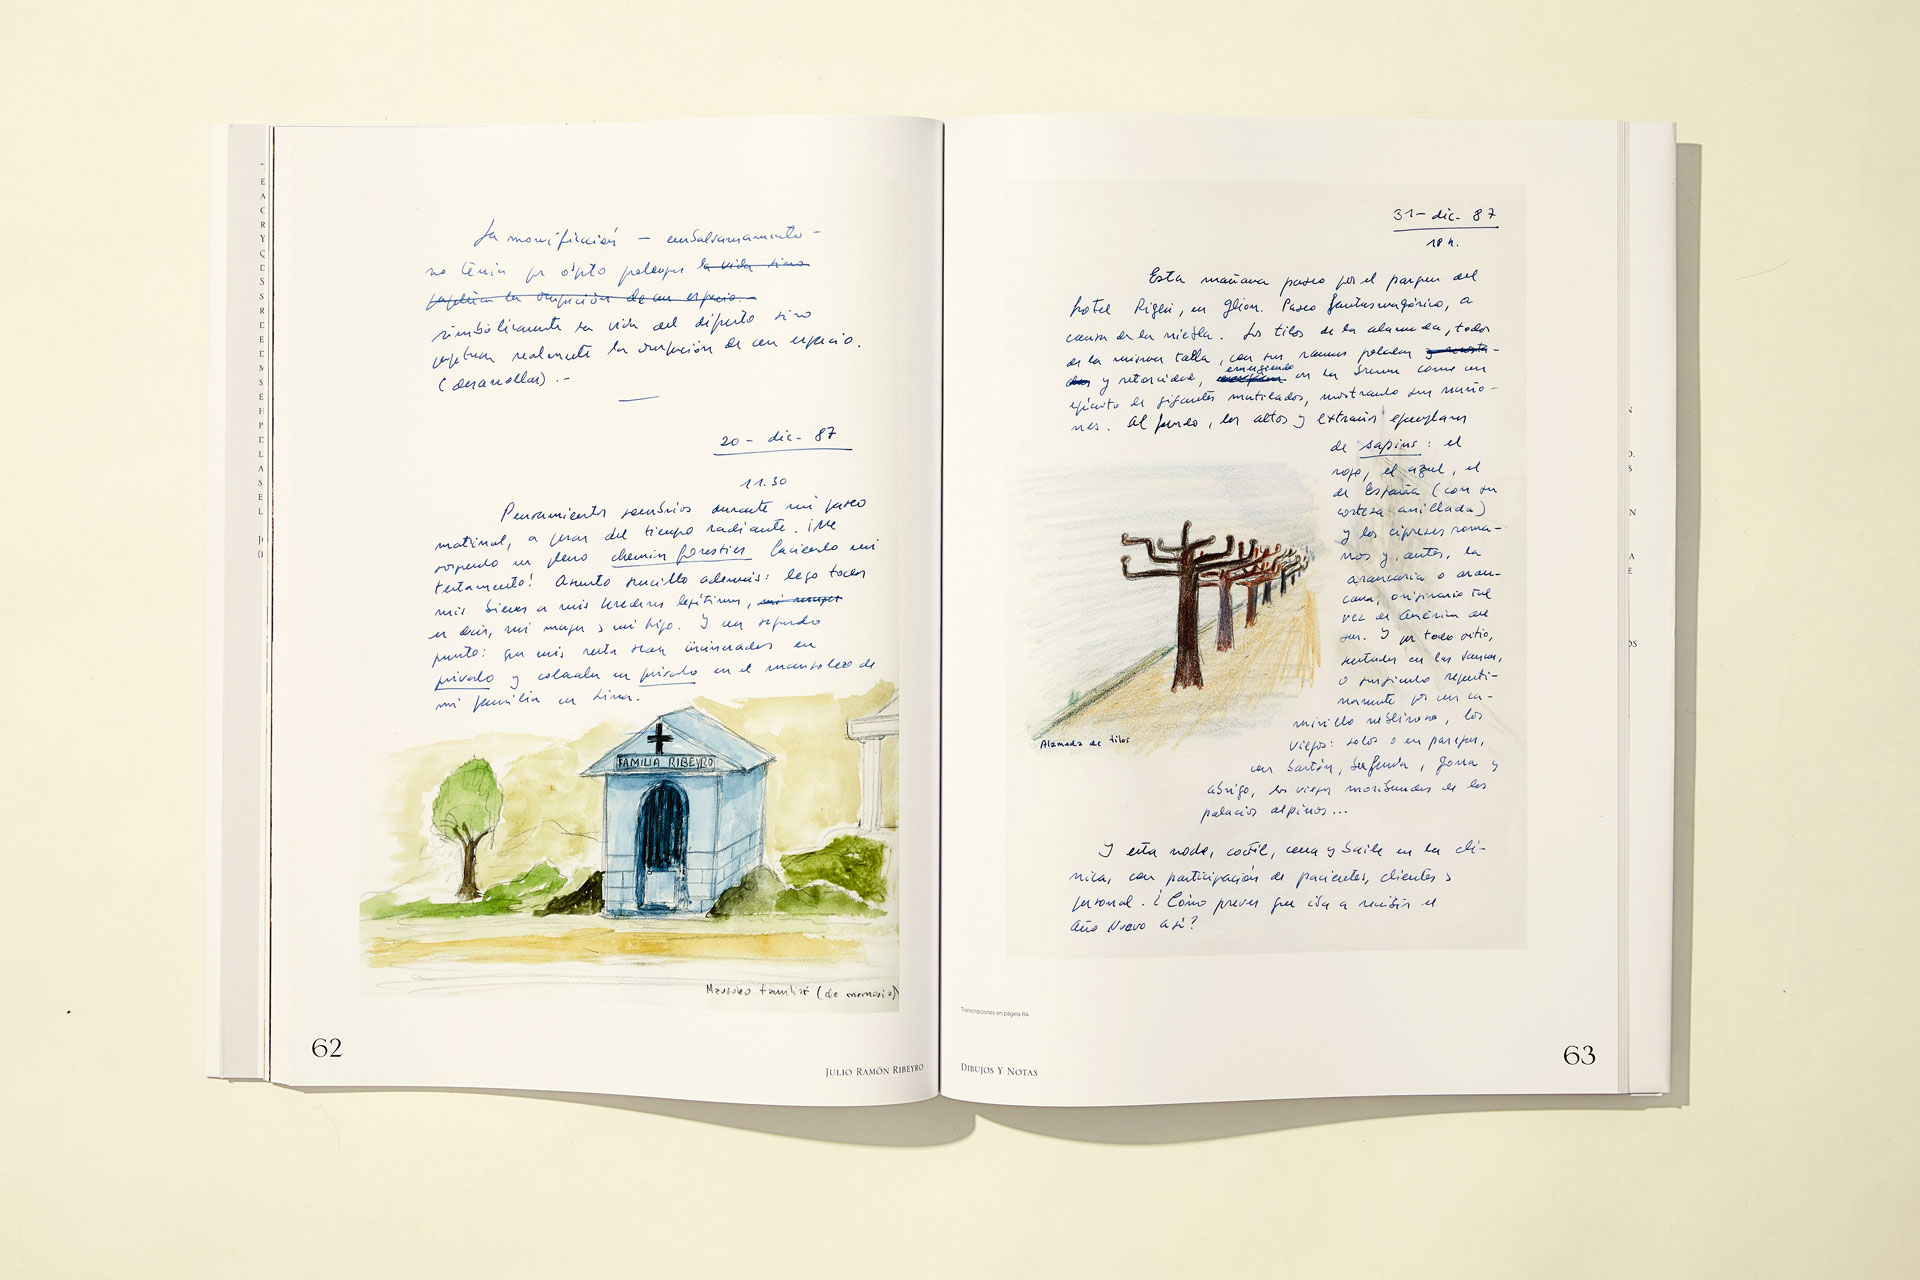 La momificación — embalsamamiento —
no tenía por objeto prolongar la vida sino
la ocupación de un espacio.—
simbólicamente la vida del difunto sino
perpetuar realmente la ocupación de un espacio.
(desarrollar).—
20 - dic- 87
11.30
Pensamientos sombríos durante mi paseo
matinal, a pesar del tiempo radiante. ¡Me
sorprendo en pleno chemin forestier haciendo mi
testamento! Asunto sencillo además: lego todos
mis bienes a mis herederos legítimos, mi mujer
es decir, mi mujer y mi hijo. Y un segundo
punto: que mis restos sean incinerados en
privado y colocados en privado en el mausoleo de
mi familia en Lima.
FAMILIA RIBEYRO
Mausoleo familiar (de memoria)
62
JULIO RAMÓN RIBEYRO
31- dic- 87
18 h.
Esta mañana paseo por el parque del
hotel Righi, en Glion. Paseo fantasmagórico, a
causa de la niebla. Los tilos de la alameda, todos
de la misma talla, con sus ramas peladas
y retorcidas, emergiendo en la bruma como un
ejército de gigantes mutilados, mostrando sus muño-
nes. Al fondo, los altos y extraños ejemplares
de sapins: el
rojo, el azul, el
de España (con su
corteza anillada)
y los cipreses roma-
nos y, antes, la
araucaria o arau-
cana, originario tal
vez de América del
sur. Y por todo sitio,
sentados en las bancas,
o surgiendo repenti-
namente por un ca-
minillo neblinoso, los
viejos: solos o en parejas,
con bastón, bufanda, gorra y
abrigo, los viejos moribundos de los
palacios alpinos...
Alameda de tilos
Y esta noche, coctel, cena y baile en la clí-
nica, con participación de pacientes, clientes y
personal. ¿Cómo prever que iba a recibir el
Año Nuevo así?
Transcripciones en página 64.
DIBUJOS Y NOTAS
63